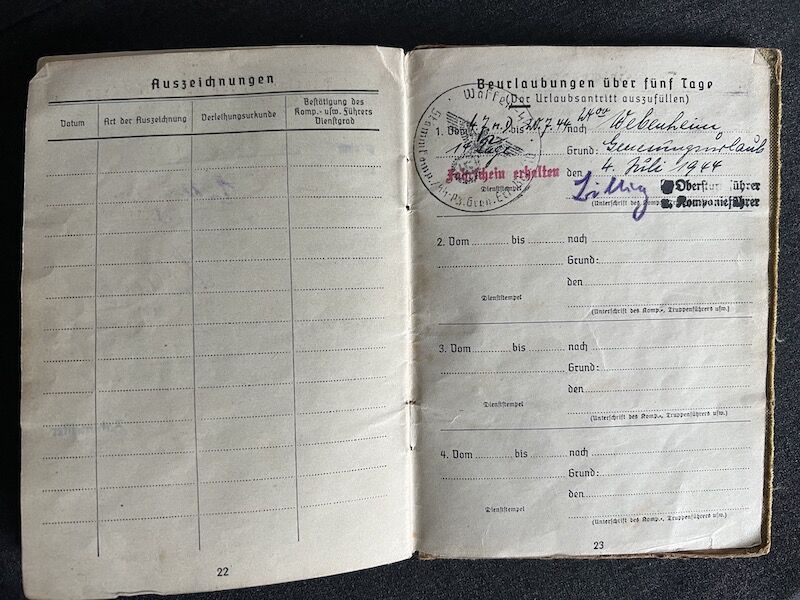 Auszeichnungen
Datum
Art der Auszeichnung
Verleihungsurkunde
Bestätigung des
Komp.- usw. Führers
Dienstgrad
22
Beurlaubungen über fünf Tage
(Vor Urlaubsantritt auszufüllen)
1. Vom 4.7. bis 20.7.44 nach Webenheim
Grund: Genesungsurlaub
Fahrschein erhalten
den 4. Juli 1944
Dienststempel
(Unterschrift des
Kompanieführer
Waffen
2. Vom bis nach
Grund:
den
Dienststempel
(Unterschrift des Komp.-, Truppenführers usw.)
3. Vom bis nach
Grund:
den
Dienststempel
(Unterschrift des Komp.-, Truppenführers usw.)
4. Vom bis nach
Grund:
den
Dienststempel
(Unterschrift des Komp.-, Truppenführers usw.)
23